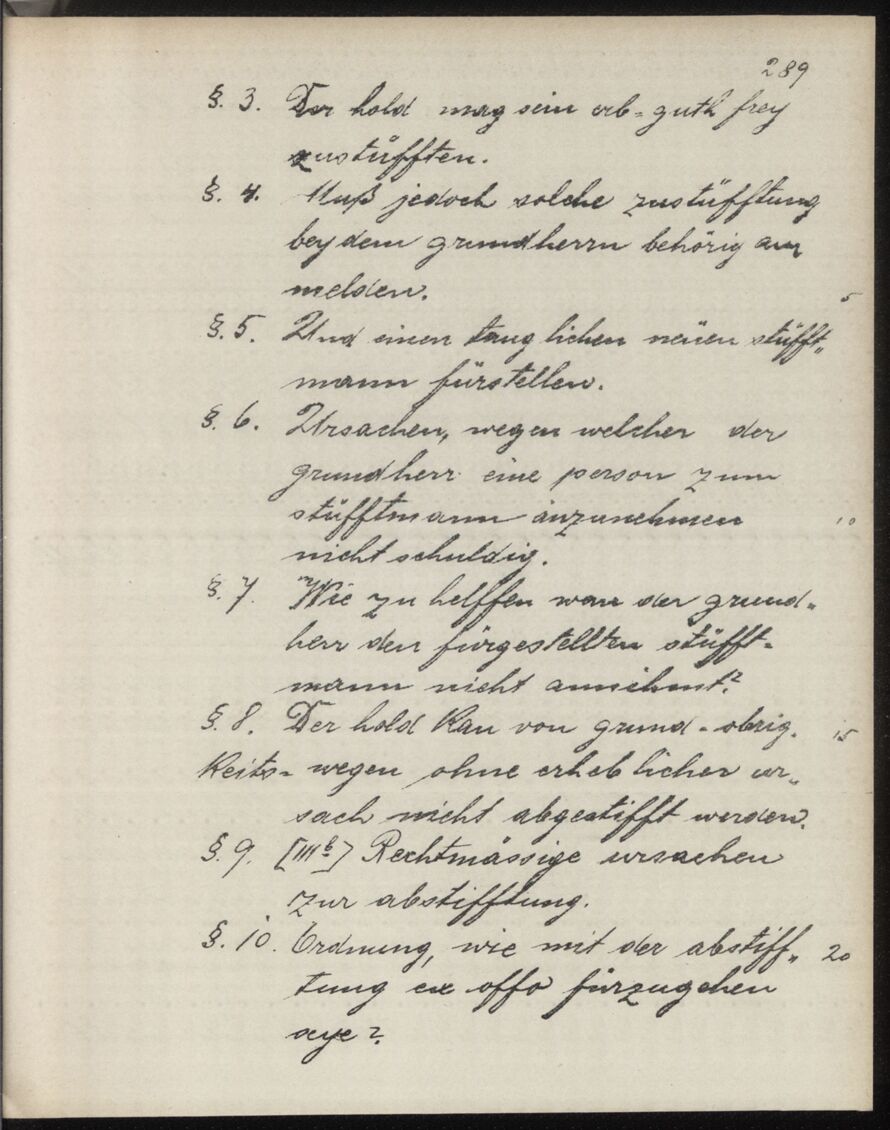 289
§. 3. Der hold mag sein erb-guth frey
zustüfften.
§. 4. Muß jedoch solche zustüfftung
bey dem grundherrn behörig an
melden.
5
§. 5. Und einen tauglichen neüen stüfft„
mann fürstellen.
§. 6. Ursachen, wegen welcher der
grundherr eine person zum
stüfftmann anzunehmen
10
nicht schuldig.
§. 7. Wie zu helffen wan der grund„
herr den fürgestellten stüfft-
mann nicht annihmt?
§. 8. Der hold kan von grund-obrig. 15
keits- wegen ohne erheblicher ur„
sach nicht abgestifft werden.
§. 9. [111b] Rechtmässige ursachen
zur abstifftung.
§. 10. Ordnung, wie mit der abstiff„ 20
tung ex offo fürzugehen
seye?